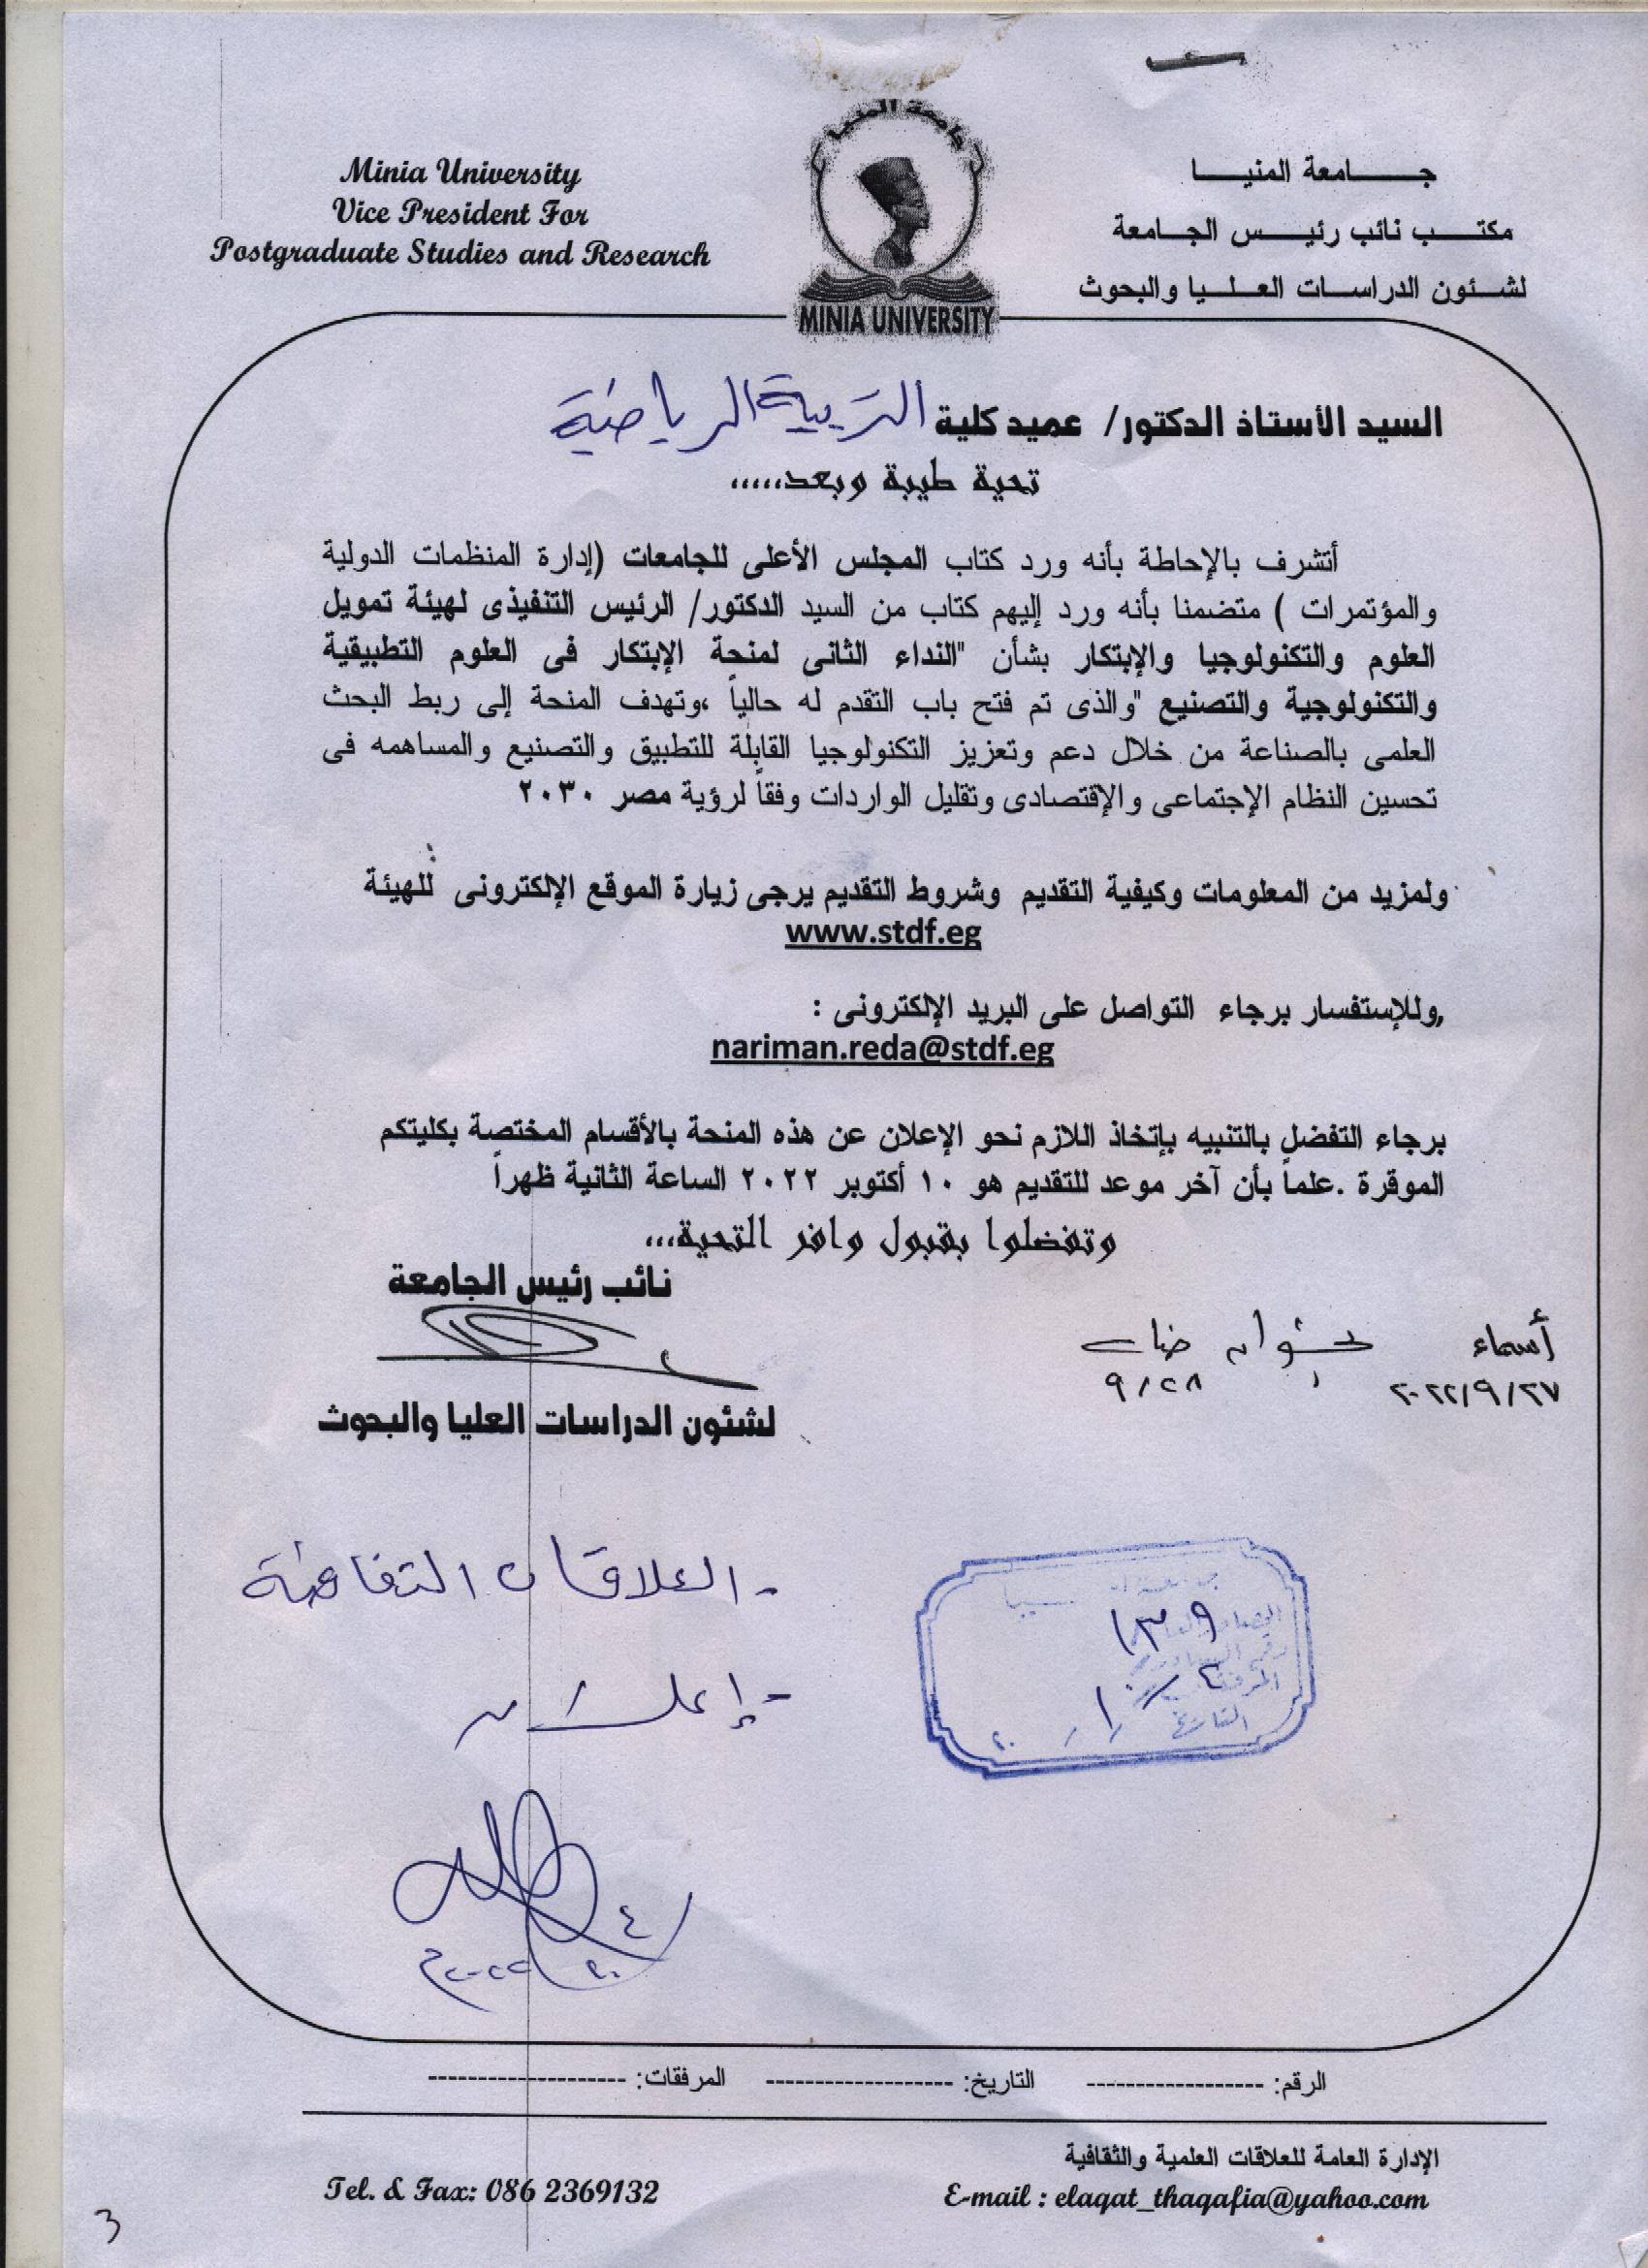 Minia University
Vice President For
Postgraduate Studies and Research
جامعة المنيا
MINIA UNIVERSITY
جـــــامعة المنيـــــا
مكتـــب نائب رئيـــس الجـــامعة
لشــئون الدراســات العــلــيا والبحوث
السيد الأستاذ الدكتور/ عميد كلية التربية الرياضية
تحية طيبة وبعد.....
أتشرف بالإحاطة بأنه ورد كتاب المجلس الأعلى للجامعات (إدارة المنظمات الدولية
والمؤتمرات ) متضمنا بأنه ورد إليهم كتاب من السيد الدكتور/ الرئيس التنفيذى لهيئة تمويل
العلوم والتكنولوجيا والإبتكار بشأن "النداء الثانى لمنحة الإبتكار فى العلوم التطبيقية
والتكنولوجية والتصنيع "والذى تم فتح باب التقدم له حالياً ،وتهدف المنحة إلى ربط البحث
العلمى بالصناعة من خلال دعم وتعزيز التكنولوجيا القابلة للتطبيق والتصنيع والمساهمه فى
تحسين النظام الإجتماعى والإقتصادى وتقليل الواردات وفقاً لرؤية مصر ٢٠٣٠
ولمزيد من المعلومات وكيفية التقديم وشروط التقديم يرجى زيارة الموقع الإلكترونى للهيئة
www.stdf.eg
,وللإستفسار برجاء التواصل على البريد الإلكترونى :
nariman.reda@stdf.eg
برجاء التفضل بالتنبيه بإتخاذ اللازم نحو الإعلان عن هذه المنحة بالأقسام المختصة بكليتكم
الموقرة .علماً بأن آخر موعد للتقديم هو ١٠ أكتوبر ٢٠٢٢ الساعة الثانية ظهراً
وتفضلوا بقبول وافر التحية...
نائب رئيس الجامعة
أسماء
٢٠٢٢/٩/٢٧
٩/٢٨
لشئون الدراسات العليا والبحوث
- العلاقات الثقافية
١٣٩
التاريخ
٤
٢٠٢٢م
الرقم: ------------------ التاريخ: ------------------- المرفقات: --------------------
الإدارة العامة للعلاقات العلمية والثقافية
Tel. & Fax: 086 2369132
E-mail : elaqat_thaqafia@yahoo.com
3